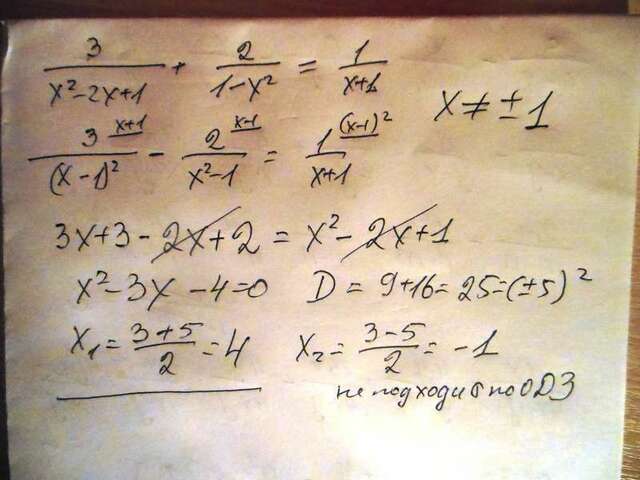 3/(x²-2x+1) + 2/(1-x²) = 1/(x+1)
x ≠ ±1
3^(x+1)/(x-1)² - 2^(x-1)/(x²-1) = 1^((x-1)²)/(x+1)
3x+3-2x+2 = x²-2x+1
x²-3x-4=0 D = 9+16=25=(±5)²
x₁ = (3+5)/2 = 4 x₂ = (3-5)/2 = -1
не подходит по ОДЗ